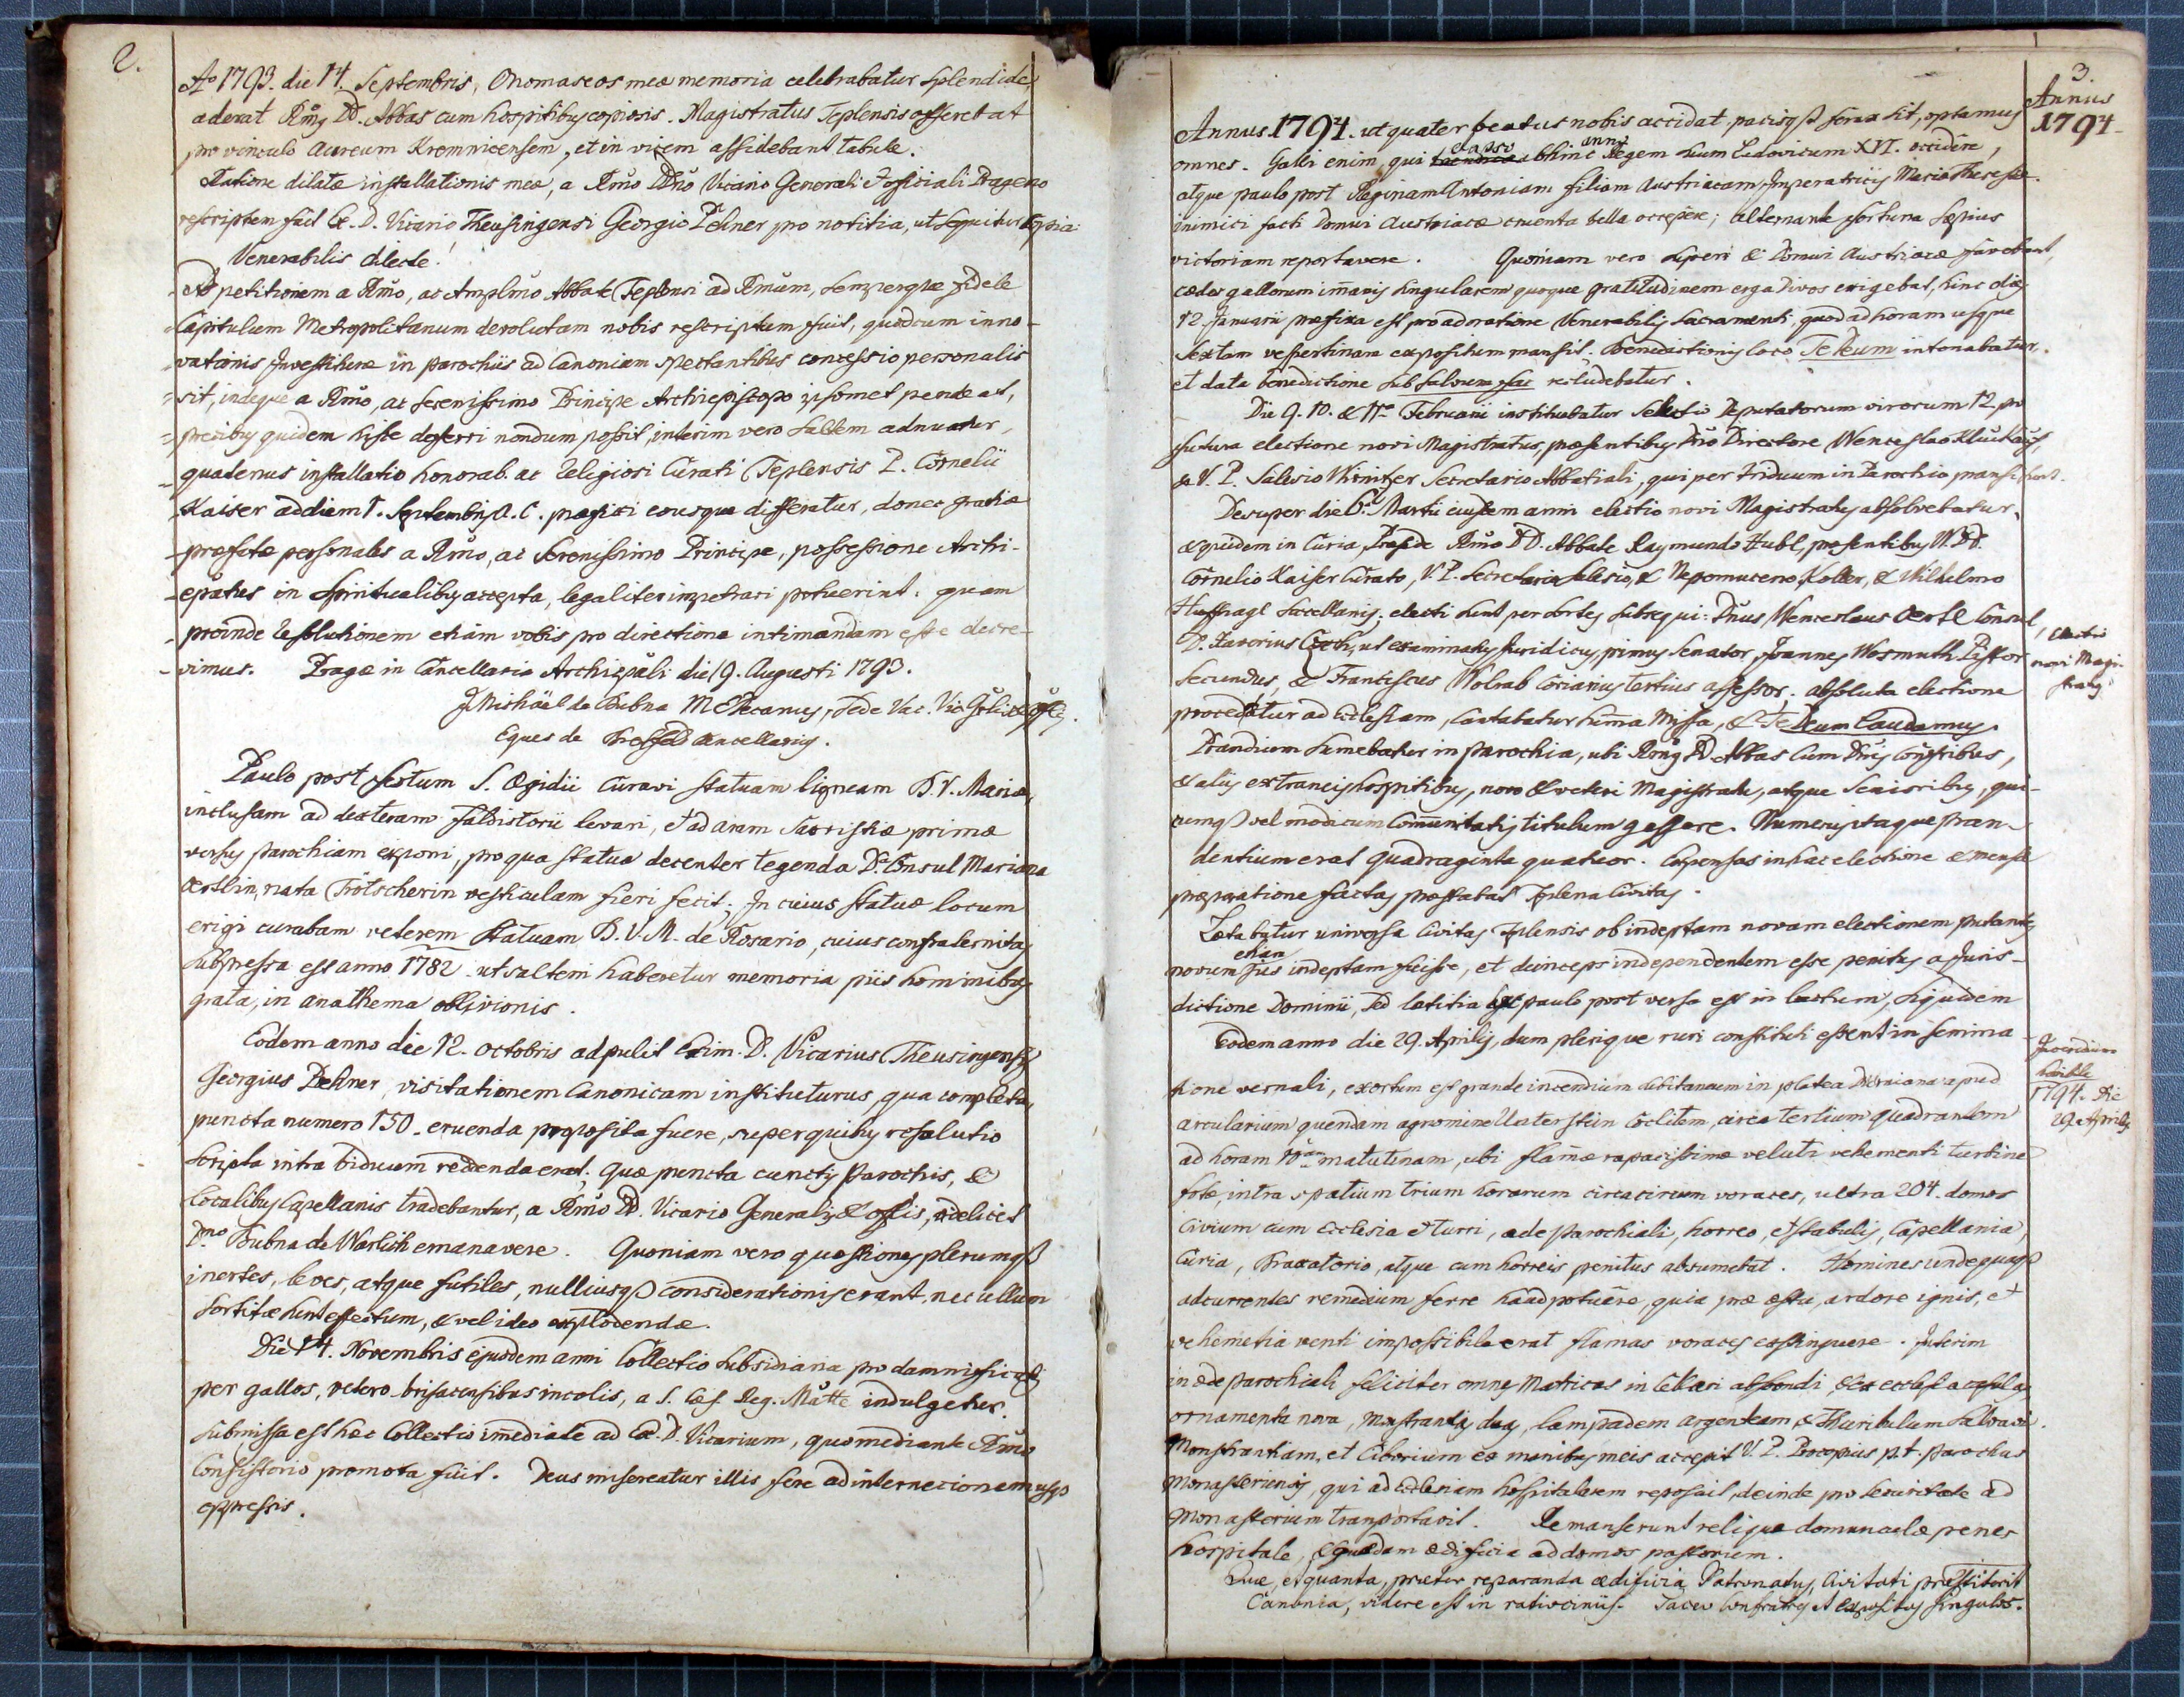 2.
Aº 1793. die 14. Septembris, Onomaseos meæ memoria celebrabatur splendide,
aderat Rmg DD. Abbas cum hospitibus copiosis. Magistratus Teplensis offerebat
pro vinculo aureum Kremnicensem, et in vicem assidebant tabulæ.
Ratione dilatæ installationis meæ, a Rmo Dno Vicario Generali & officiali Prageno
rescriptum fuit Ex. D. Vicario Theusingensi Georgio Pehner pro notitia, ut sequitur copia:
Venerabilis dilecte!
Ad petitionem a Rmo, ac Amplmo Abbate Teplensi ad Rmum, semperque fidele
Capitulum Metropolitanum devolutam nobis rescriptum fuit, quod cum inno-
vationis Investituræ in parochiis ad Canoniam spectantibus concessio personalis
sit, indeque a Rmo, ac serenissimo Principe Archiepiscopo ipsomet pendeat,
precibus quidem hisce deferri nondum possit, interim vero saltem adnuatur,
quatenus installatio honorab. ac religiosi Curati Teplensis P. Cornelii
Kaiser ad diem 1. Septembris a. c. præfixi eousque differatur, donec gratiæ
præfatæ personales a Rmo, ac Serenissimo Principe, possessione Archi-
epatus in spiritualibus accepta, legaliter impetrari potuerint: quam
proinde resolutionem etiam vobis pro directione intimandam esse decre-
vimus. Pragæ in Cancellaria Archiepali die 19. Augusti 1793.
J Michäel de Bubna M Decanus, Sede Vac. Vic Gnlis & offlis.
Eques de Cancellarius.
Paulo post festum S. Ægidii curavi statuam ligneam B. V. Mariæ,
inclusam ad dexteram faldistorii levari, et ad aram Sacristiæ primæ
versus parochiam exponi, pro qua statua decenter tegenda Da. Consul Mariana
Oertlin, nata Trötscherin vesticulam fieri fecit. In cuius statuæ locum
erigi curabam veterem statuam B. V. M. de Rosario, cuius confraternitas
subpressa est anno 1782 ut saltem haberetur memoria piis hominibus
grata, in anathema oblivionis.
Eodem anno die 12. octobris adpulit Exim. D. Vicarius Theusingensis
Georgius Pehner, visitationem Canonicam instituturus, qua completa,
puncta numero 150 eruenda proposita fuere, super quibus resolutio
scripta intra biduum reddenda erat. Quæ puncta cunctis Parochis, &
Localibus Capellanis tradebantur, a Rmo DD. Vicario Generali, & offlis, videlicet
Dno Bubna de Warlich emanavere. Quoniam vero quæstiones plerumqß
inertes, leves, atque futiles, nulliusqß considerationis erant, nec ullum
sortitæ sunt effectum, & vel ideo explodendæ.
Die 14. Novembris ejusdem anni Collectio subsidiaria pro damnificatis
per gallos, vetero-brisacensibus incolis, a S. Cæs. Reg. Matte indulgetur.
submissa est hæc Collectio immediate ad Ex. D. Vicarium, quo mediante Rmo
Consistorio promota fuit. Deus misereatur illis fere ad internecionem usqß
oppressis.
3.
Annus
1794
Annus 1794. ut quater beatus nobis accidat, pacisqß ferax sit, optamus
omnes. Galli enim, qui elapso abhinc anno Regem suum Ludovicum XVI. occidêre,
atque paulo post Reginam Antoniam filiam Austriacam, Imperatricis Mariæ Theresiæ
inimici facti Domui Austriacæ cruenta bella accepêre; alternante fortuna sæpius
victoriam reportavere. Quoniam vero superi & Domui Austriacæ favebant,
cædes gallorum immanis singularem quoque gratitudinem erga Divos exigebat, hinc dies
12. Januarii præfixa est pro adoratione Venerabilis Sacramenti, quod ad horam usque
sextam vespertinam expositum mansit. Benedictionis loco Te Deum intonabatur,
et data benedictione sub Salvum fac recludebatur.
Die 9. 10. & 11a Februarii instituebatur Selectio Deputatorum virorum 12. pro
futura electione novi Magistratus, præsentibus Dno Directore Wenceslao
& V. P. Salesio Secretario Abbatiali, qui per triduum in Parochia manserunt.
Desuper die 6a Martii eiusdem anni electio novi Magistratus absolvebatur,
& quidem in Curia, Præside Rmo DD. Abbate Raymundo Hubl, præsentibus V. DD.
Cornelio Kaiser Curato, V. P. Secretario Salesio, & Nepomuceno Koller, & Wilhelmo
Huffnagl sacellanis: electi sunt per sortes subsequi: Dnus Wenceslaus Oertl Consul,
D. Xaverius, ut examinatus Juridicus, primus Senator, Joannes Wosmuth Pistor
secundus, & Franciscus Wolrab coriarius tertius assessor. absoluta electione
procedatur ad Ecclesiam, cantabatur summa Missa, & Te Deum Laudamus.
Electio
novi Magi-
stratus
Prandium sumebatur in parochia, ubi Rmg DD. Abbas cum Dnis confribus,
& aliis extraneis hospitibus, novo & veteri Magistratu, atque senioribus, qui-
cumqß vel modicum Communitatis titulum gessere. Numerus itaque pran-
dentium erat quadraginta quatuor. Expensas in hac electione & mensæ
præparatione factas præstabat Teplena Civitas.
Lætabatur universa Civitas Teplensis ob indeptam novam electionem putantes
etiam
novum jus indeptam fuisse, et deinceps independentem esse penitus a Juris-
dictione Dominii, sed lætitia hæc paulo post versa est in luctum, siquidem
Eodem anno die 29. Aprilis, dum plerique ruri constituti essent in semina-
tione vernali, exortum est grande incendium subitaneum in platea apud
arcularium quendam agnomine Unterstein Coelitem, circa tertium quadrantem
ad horam 10am matutinam, ubi flamæ rapacissimæ veluti vehementi turbine
fotæ, intra spatium trium horarum circacircum voraces, ultra 204. domos
civium cum Ecclesia & turri, æde parochiali, horreo, & stabulis, Capellania,
Curia, Braxatorio, atque cum horreis penitus absumebat. Homines undequaqß
adcurrentes remedium ferre haud potuêre, quia præ æstu, ardore ignis, et
vehemetia venti impossibile erat flamas voraces exstinguere. Interim
in æde parochiali feliciter omnes Matricas in cellari abscondi, & ex ecclesia casulas
ornamenta nova, Monstrantias duas, lampadem argenteam, & Thuribulum salvavi.
Monstrantiam, et Ciborium ex manibus meis accepit V. P. Procopius p.t. parochus
Monasteriensis, qui ad ecclesiam hospitalem reposuit, deinde pro securitate ad
Monasterium transportavit. Remanserunt reliquæ domunculæ penes
hospitale, & quædam ædificia ad domos pastorum.
Incendium
horribile
1794. Die
29. Aprilis
Quæ, et quanta, præter reparanda ædificia Patronatus, Civitati præstiterit
Canonia, videre est in ratiociniis. Taceo confratres & expositos singulos.